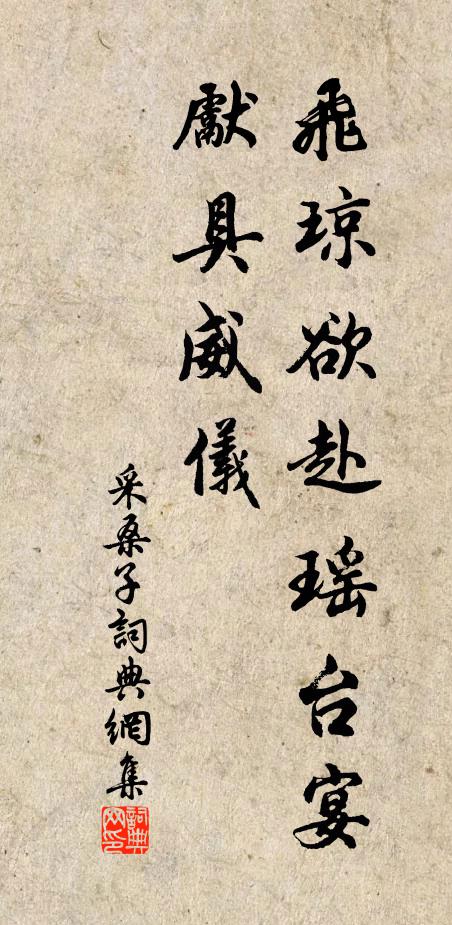 飛琼欲赴瑶台宴
獻具威儀
采桑子詞典網集
詞典網印